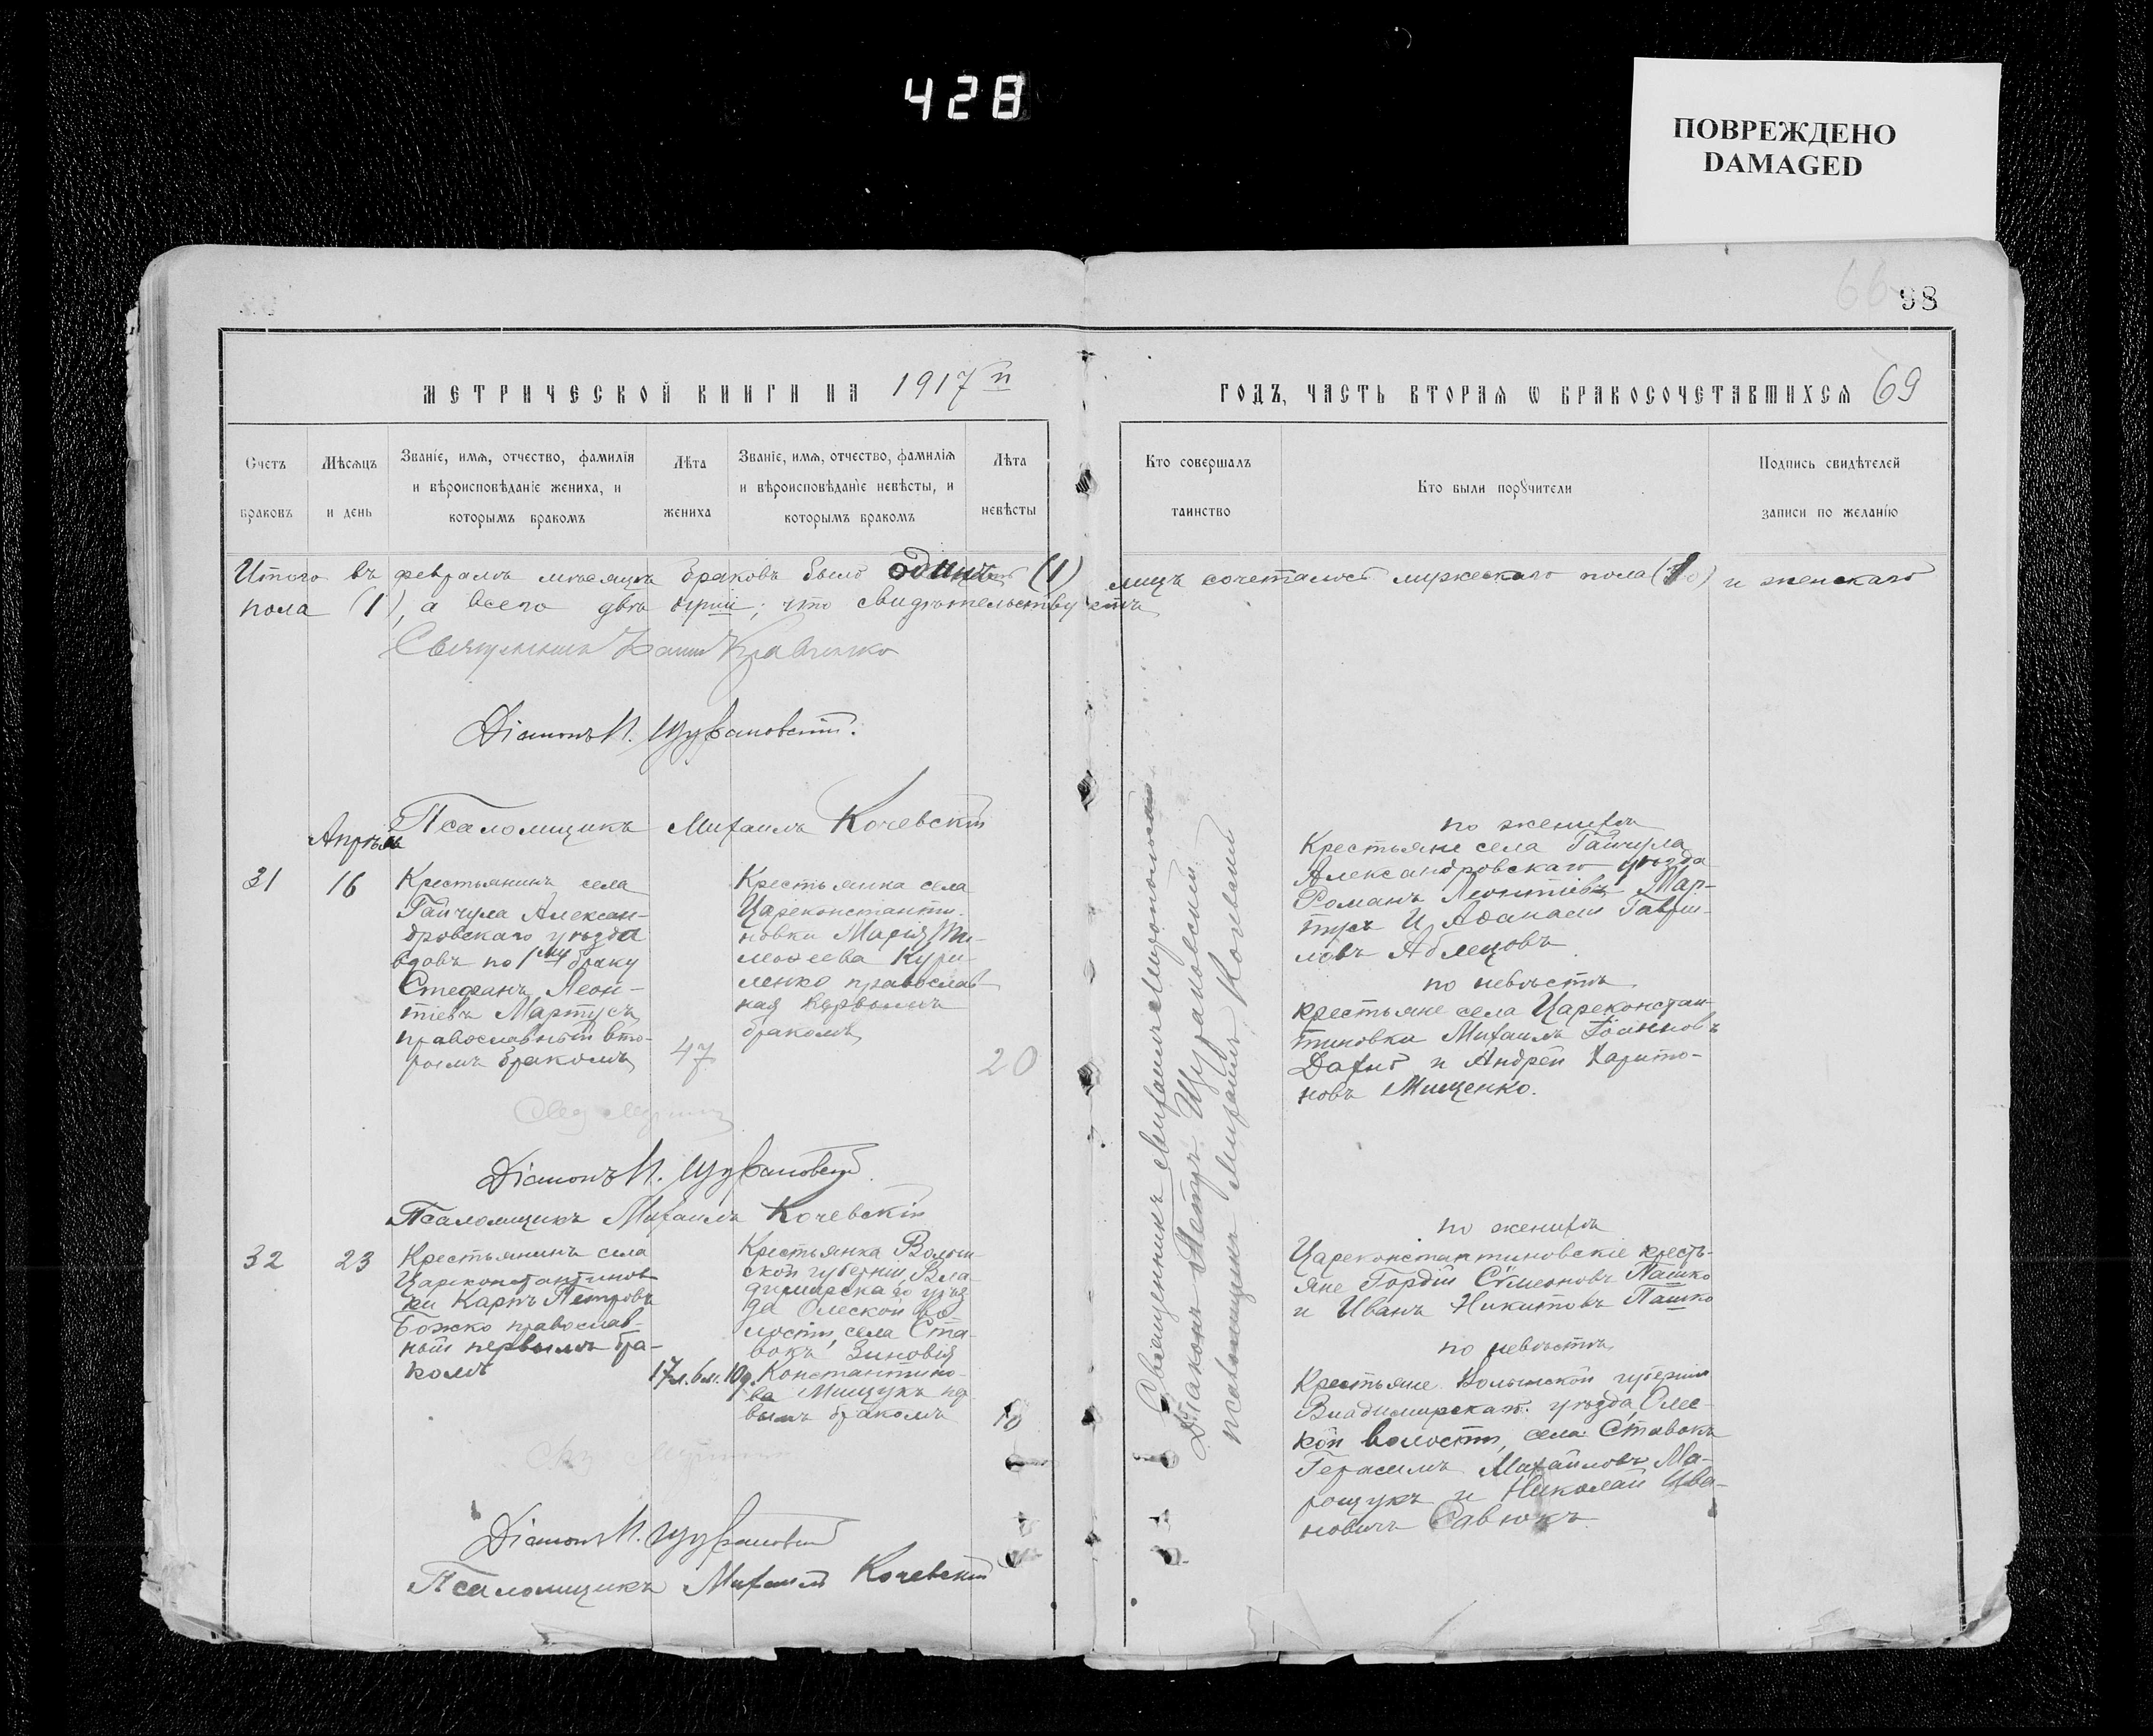 428
ПОВРЕЖДЕНО
DAMAGED
66
98
МЕТРИЧЕСКОЙ КНИГИ НА 1917 й
ГОДЪ, ЧАСТЬ ВТОРАЯ Ѡ БРАКОСОЧЕТАВШИХСЯ 69
Счетъ браковъ
Мѣсяцъ и день
Званіе, имя, отчество, фамилія
и вѣроисповѣданіе жениха, и
которымъ бракомъ
Лѣта жениха
Званіе, имя, отчество, фамилія
и вѣроисповѣданіе невѣсты, и
которымъ бракомъ
Лѣта невѣсты
Кто совершалъ
таинство
Кто были порꙋчители
Подпись свидѣтелей
записи по желанію
Итого въ февралѣ мѣсяцѣ браковъ было одинъ (1) лицъ сочеталось мужескаго пола (1) и женскаго
пола (1), а всего двѣ ; что свидѣтельствуетъ
Священникъ Кравченко
Діаконъ П. Щурановскій.
Псаломщикъ Михаилъ Кочевскій
Апрѣль
31
16
Крестьянинъ села
Гайчула Алексан-
дровскаго уѣзда
вдовъ по 1му браку
Стефанъ Леон-
тіевъ Мартусь
православный вто-
рымъ бракомъ
47
Крестьянка села
Цареконстанти-
новки Марія Ти-
моѳеева Кури-
ленко православ-
ная первымъ
бракомъ
20
Священникъ Михаилъ
Діаконъ Петръ Щурановскій
Псаломщикъ Михаилъ Кочевскій
по женихѣ
Крестьяне села Гайчула
Александровскаго уѣзда
Романъ Леонтіевъ Мар-
тусь и Аѳанасій Гаврі-
ловъ Аблецовъ
по невѣстѣ
крестьяне села Цареконстан-
тиновки Михаилъ Іоанновъ
Дахно и Андрей Харито-
новъ Мищенко.
Діаконъ П. Щурановскій
Псаломщикъ Михаилъ Кочевскій
32
23
Крестьянинъ села
Цареконстантинов
ки Карпъ Петровъ
Божко православ-
ный первымъ бра-
комъ
17л. 6м. 10д.
Крестьянка Волын-
ской губерніи Вла-
димирскаго уѣз
да Олеской во
лости, села Ста-
вокъ Зиновія
Константино-
ва Мищукъ пер
вымъ бракомъ
по женихѣ
Цареконстантиновскіе кресть-
яне Гордій Сѵмеоновъ Пашко
и Иванъ Никитовъ Пашко
по невѣстѣ
Крестьяне Волынской губерніи
Владимирскаго уѣзда, Олес-
кой волости, села Ставокъ
Герасимъ Михайловъ Ма-
рощукъ и Николай Ива-
новичъ Савюкъ
Діаконъ П. Щурановскій
Псаломщикъ Михаилъ Кочевскій